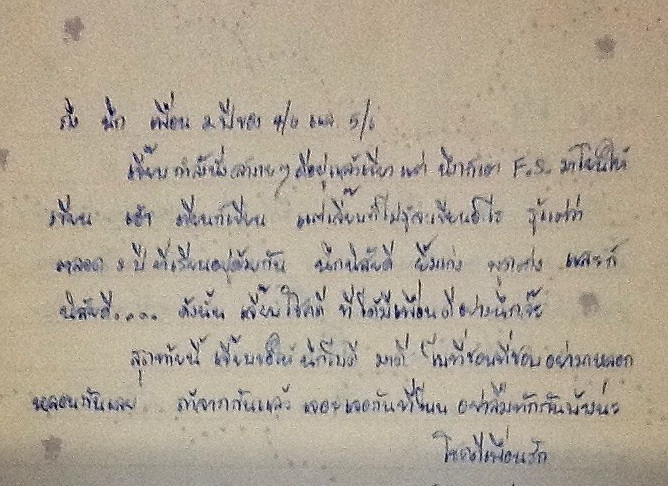 ถึง นึก เพื่อน ๒ ปีของ 4/6 และ 5/6
เจี๊ยบกำลังนั่งสบายๆ ดีอยู่แล้วเชียว แต่ นึกก็เอา F.S. มาโยนให้
เขียน เอ้า เขียนก็เขียน แต่เจี๊ยบก็ไม่รู้จะเขียนอะไร รู้แต่ว่า
ตลอด ๒ ปี ที่เรียนอยู่ด้วยกัน นึกนิสัยดี ยิ้มเก่ง พูดเก่ง และก็
นิสัยดี.... ดังนั้น เจี๊ยบโชคดี ที่ได้มีเพื่อนดีอย่างนึกจ๊ะ
สุดท้ายนี้ เจี๊ยบขอให้ นึกโชคดี มาก ที่ชอบที่ชอบ อย่ามาหลอก
หลอนกันเลย ถ้าจากกันแล้ว เจอกันที่ไหน อย่าลืมทักกันบ้างนะ
โชคดีเพื่อนรัก